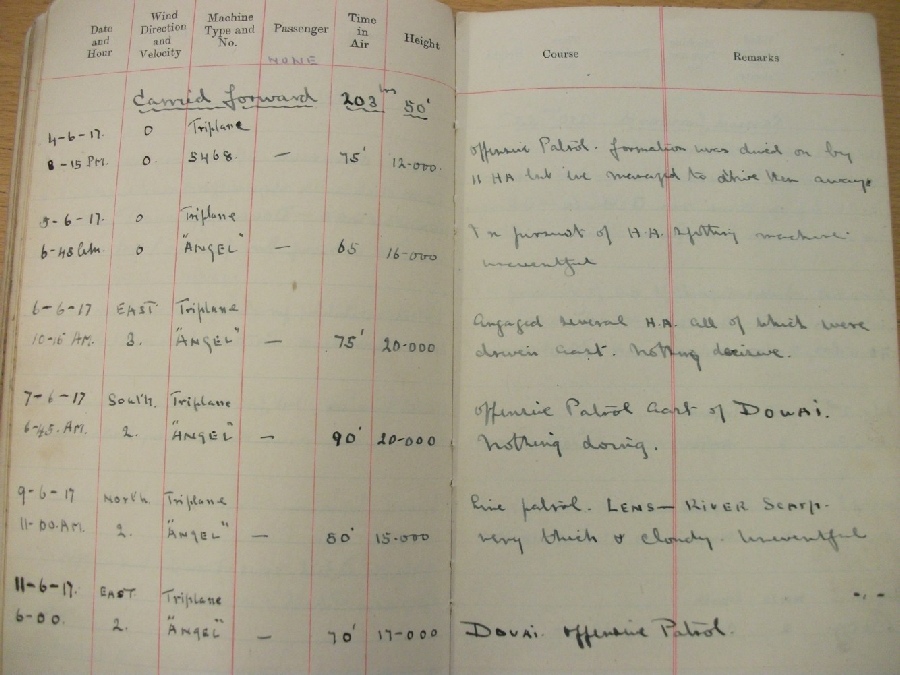 Date and Hour Wind Direction and Velocity Machine Type and No. Passenger Time in Air Height Course Remarks
NONE
Carried forward 203 hrs 50'
4-6-17. 0 Triplane
8-15 PM. 0. 5468. — 75' 12-000. offensive Patrol. formation was dived on by
11 HA but we managed to drive them away
5-6-17. 0 Triplane
6-45 0 "ANGEL" — 65 16-000 In pursuit of H.A. spotting machine.
uneventful
6-6-17 EAST Triplane
10-15 AM. 3. "ANGEL" — 75' 20-000 Engaged several H.A. all of which were
driven East. Nothing decisive.
7-6-17 South. Triplane
6-45. AM. 2. "ANGEL" — 90' 20-000 offensive Patrol East of DOUAI.
Nothing doing.
9-6-17 North Triplane
11-00. AM. 2. "ANGEL" — 80' 15-000 Line patrol. LENS — RIVER SCARP.
very thick & cloudy. Uneventful
11-6-17. EAST Triplane
6-00. 2. "ANGEL" — 70' 17-000 DOUAI. offensive Patrol.